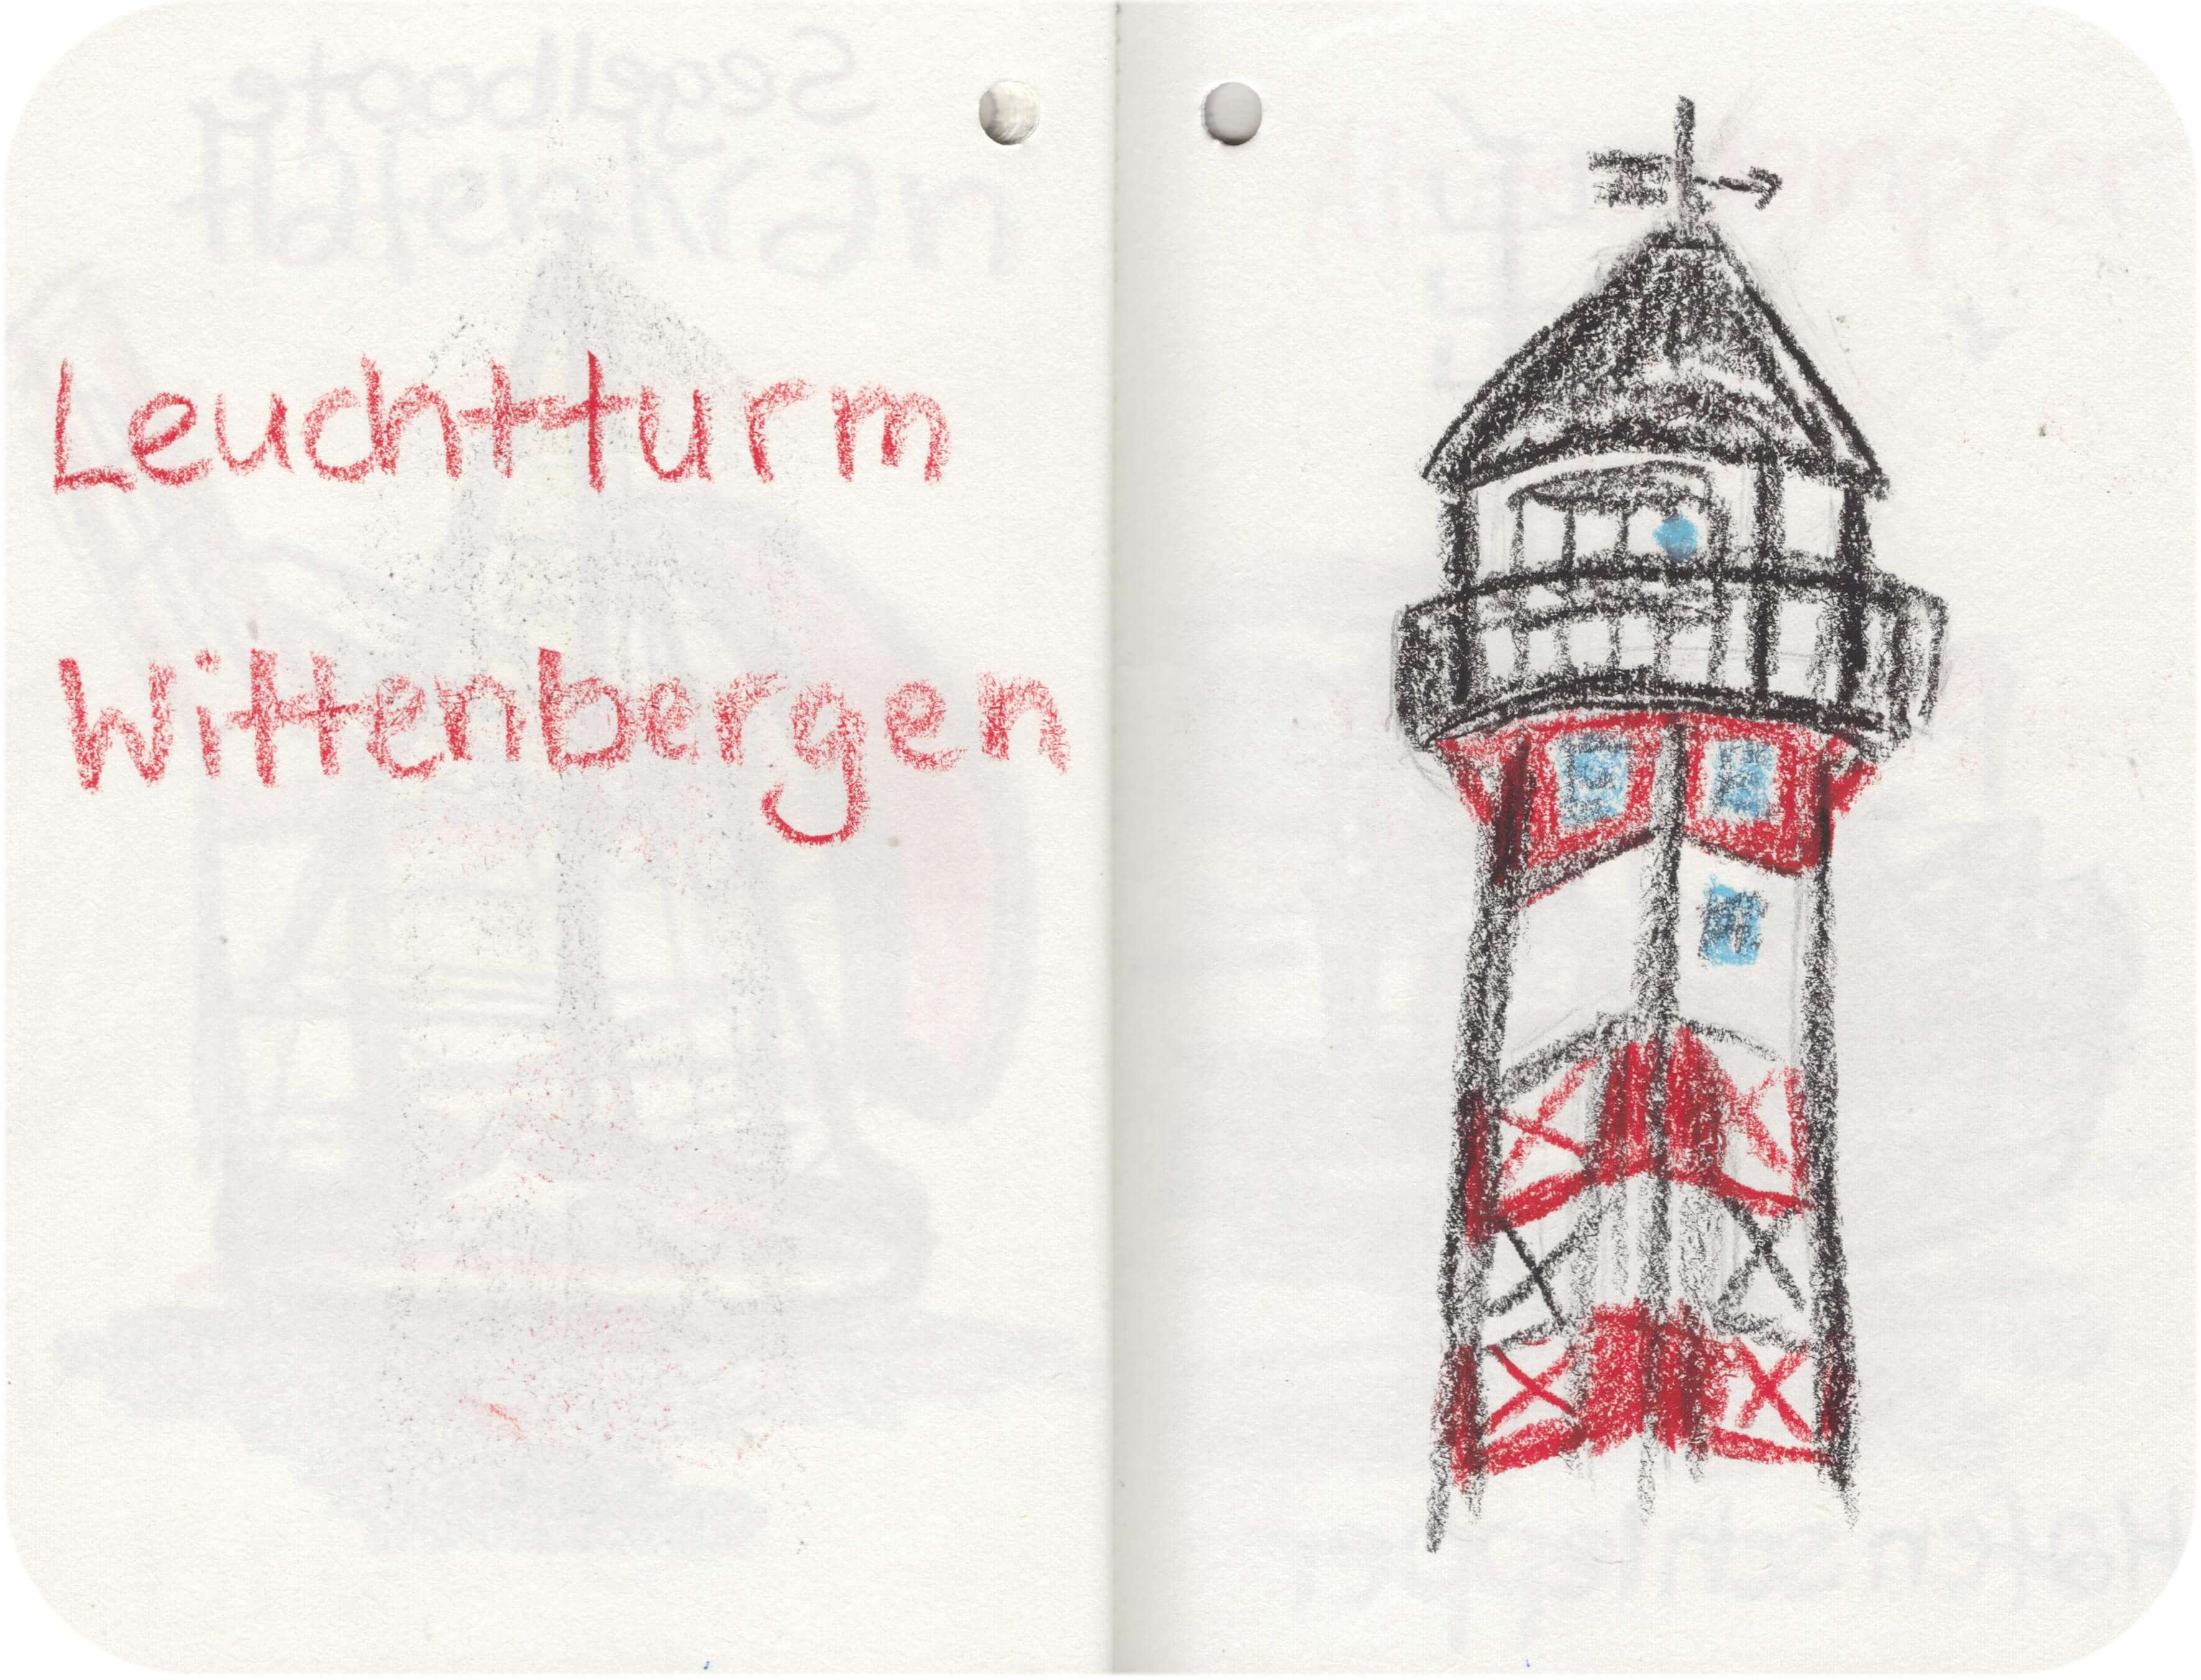 Leuchtturm
Wittenbergen